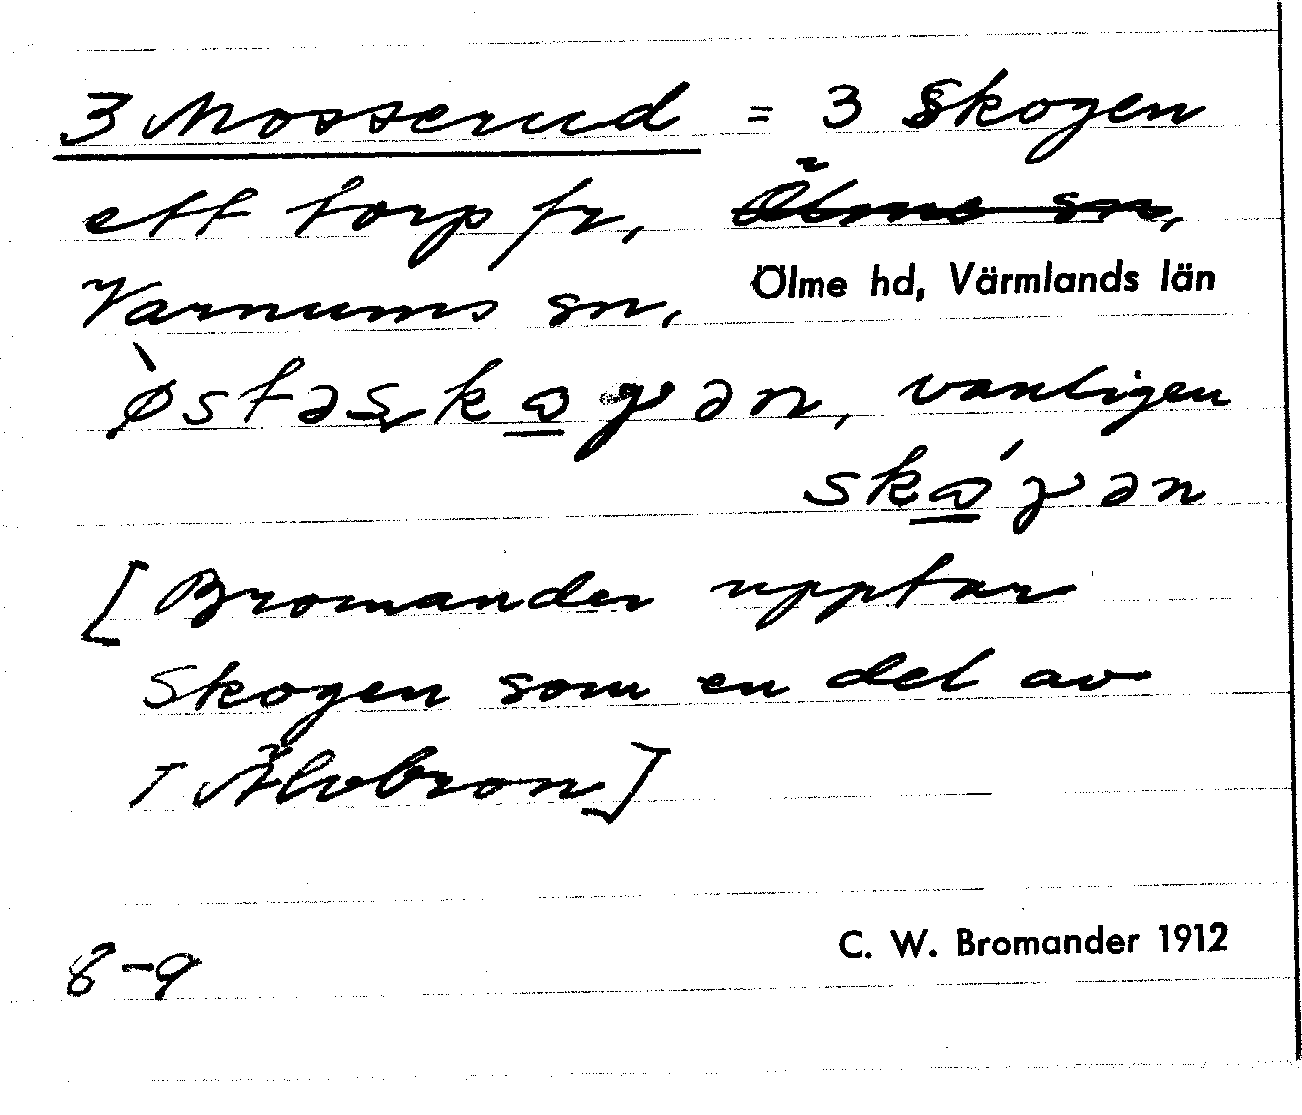 3 Mosserud = 3 Skogen
ett torp fr, Ölme sn,
Varnums sn, Ölme hd, Värmlands län
ø̀stəskωγən, vanligen
skώγən
[Bromander upptar
Skogen som en del av
1 Älvbron]
8-9 C. W. Bromander 1912